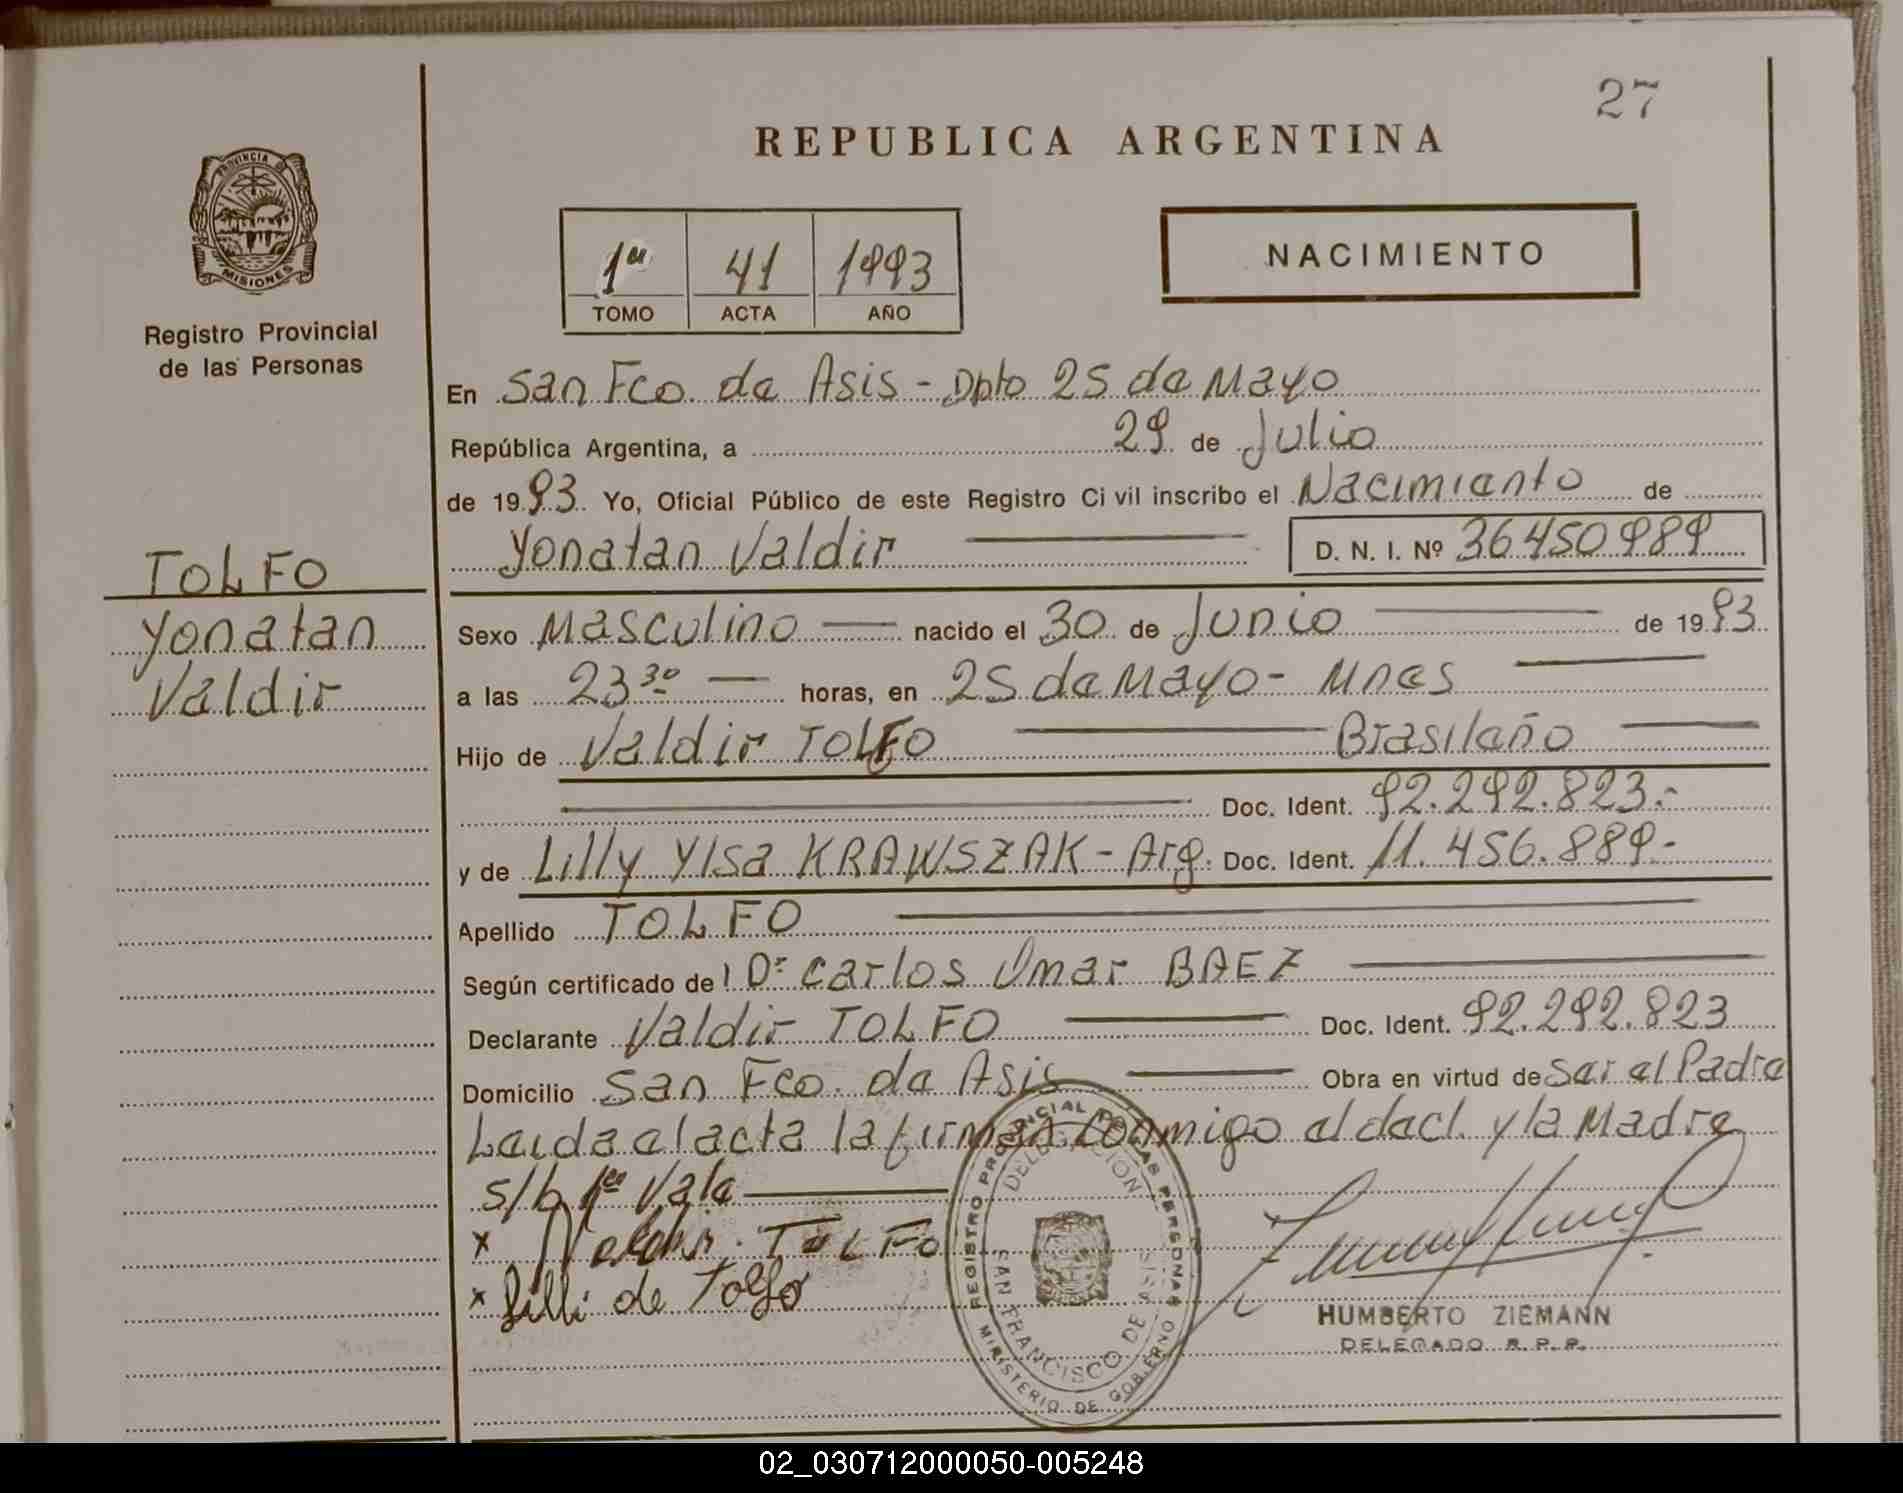 27
REPUBLICA ARGENTINA
PROVINCIA DE
MISIONES
Registro Provincial
de las Personas
1º 41 1993
TOMO ACTA AÑO
NACIMIENTO
En San Fco. de Asis - Dpto 25 de Mayo
República Argentina, a 29 de Julio
de 1993. Yo, Oficial Público de este Registro Civil inscribo el Nacimiento de
Yonatan Valdir D. N. I. Nº 36450989
TOLFO
Yonatan
Valdir
Sexo Masculino nacido el 30 de Junio de 1993
a las 23 30 horas, en 25 de Mayo - Mnes
Hijo de Valdir TOLFO Brasileño
Doc. Ident. 92.292.823.-
y de Lilly Ylsa KRAWSZAK - Arg. Doc. Ident. 11.456.889.-
Apellido TOLFO
Según certificado de Dr Carlos Omar BAEZ
Declarante Valdir TOLFO Doc. Ident. 92.292.823
Domicilio San Fco. de Asis Obra en virtud de Ser el Padre
Leida el acta la firman conmigo el decl. y la Madre
s/b 1º Vale
x Valdir TOLFO
x Lilli de Tolfo
REGISTRO PROVINCIAL DE LAS PERSONAS
DELEGACION
SAN FRANCISCO DE ASIS
MINISTERIO DE GOBIERNO
HUMBERTO ZIEMANN
DELEGADO R.P.P.
02_030712000050-005248